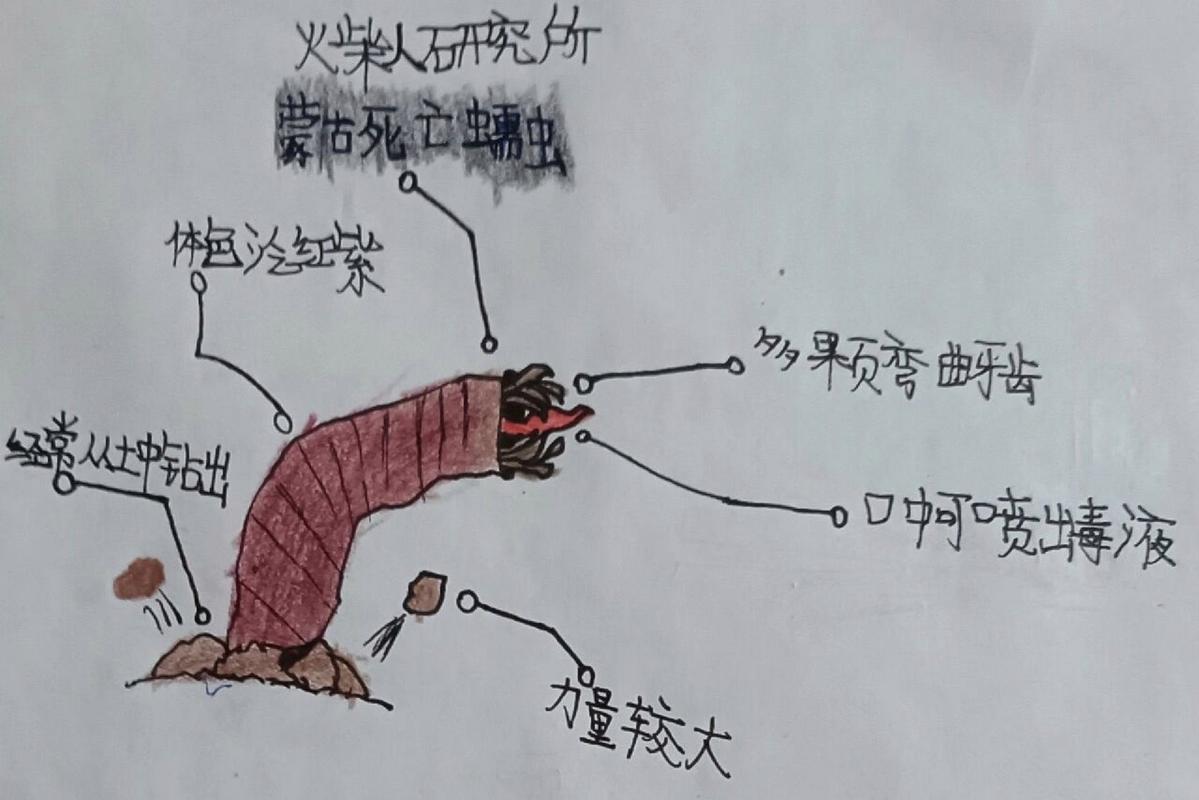 火柴人研究所
蒙古死亡蠕虫
体色泛红紫
多颗弯曲牙齿
经常从土中钻出
口中可喷出毒液
力量较大